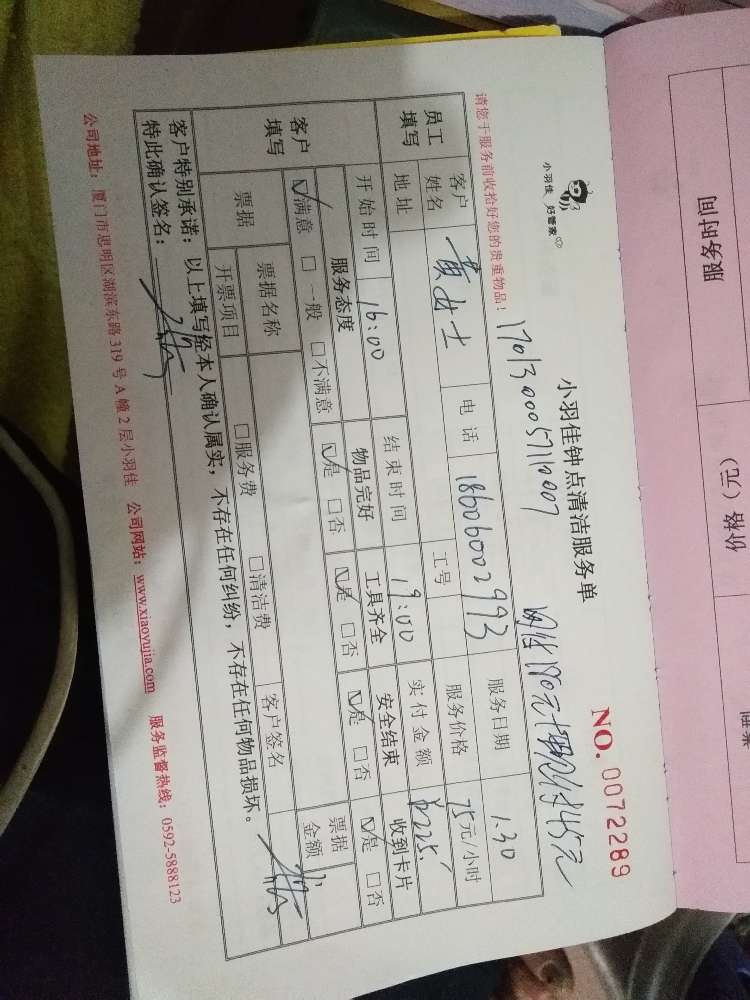 小羽佳 好管家
小羽佳钟点清洁服务单
NO. 0072289
请您于服务前收拾好您的贵重物品!
员工填写
客户姓名 黄女士 电话 18606002993 服务日期 1.30
地址 工号 服务价格 75元/小时
开始时间 16:00 结束时间 19:00 实付金额 225.
客户填写
服务态度 物品完好 工具齐全 安全结束 收到卡片
☑满意 □一般 □不满意 ☑是 □否 ☑是 □否 ☑是 □否 ☑是 □否
票据 票据名称 客户签名 票据金额
开票项目 □服务费 □清洁费
客户特别承诺:以上填写经本人确认属实,不存在任何纠纷,不存在任何物品损坏。
特此确认签名:
公司地址:厦门市思明区湖滨东路319号A幢2层小羽佳 公司网站:www.xiaoyujia.com 服务监督热线:0592-5888123
服务时间
价格(元)